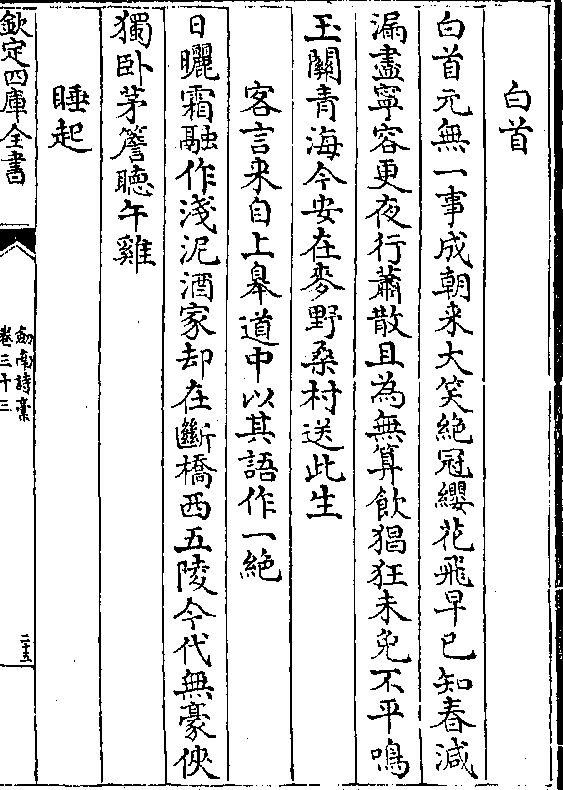 白首
白首元無一事成朝来大笑絶冠纓花飛早已知春減
漏盡寧容更夜行蕭散且為無算飲猖狂未免不平鳴
玉關青海今安在麥野桑村送此生
客言来自上皋道中以其語作一絶
日曬霜融作淺泥酒家却在斷橋西五陵今代無豪俠
獨卧茅簷聽午雞
睡起
欽定四庫全書
劍南詩藁
卷三十三
二十五